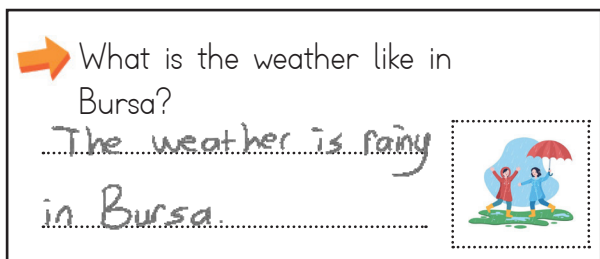 What is the weather like in
Bursa?
The weather is rainy
in Bursa.